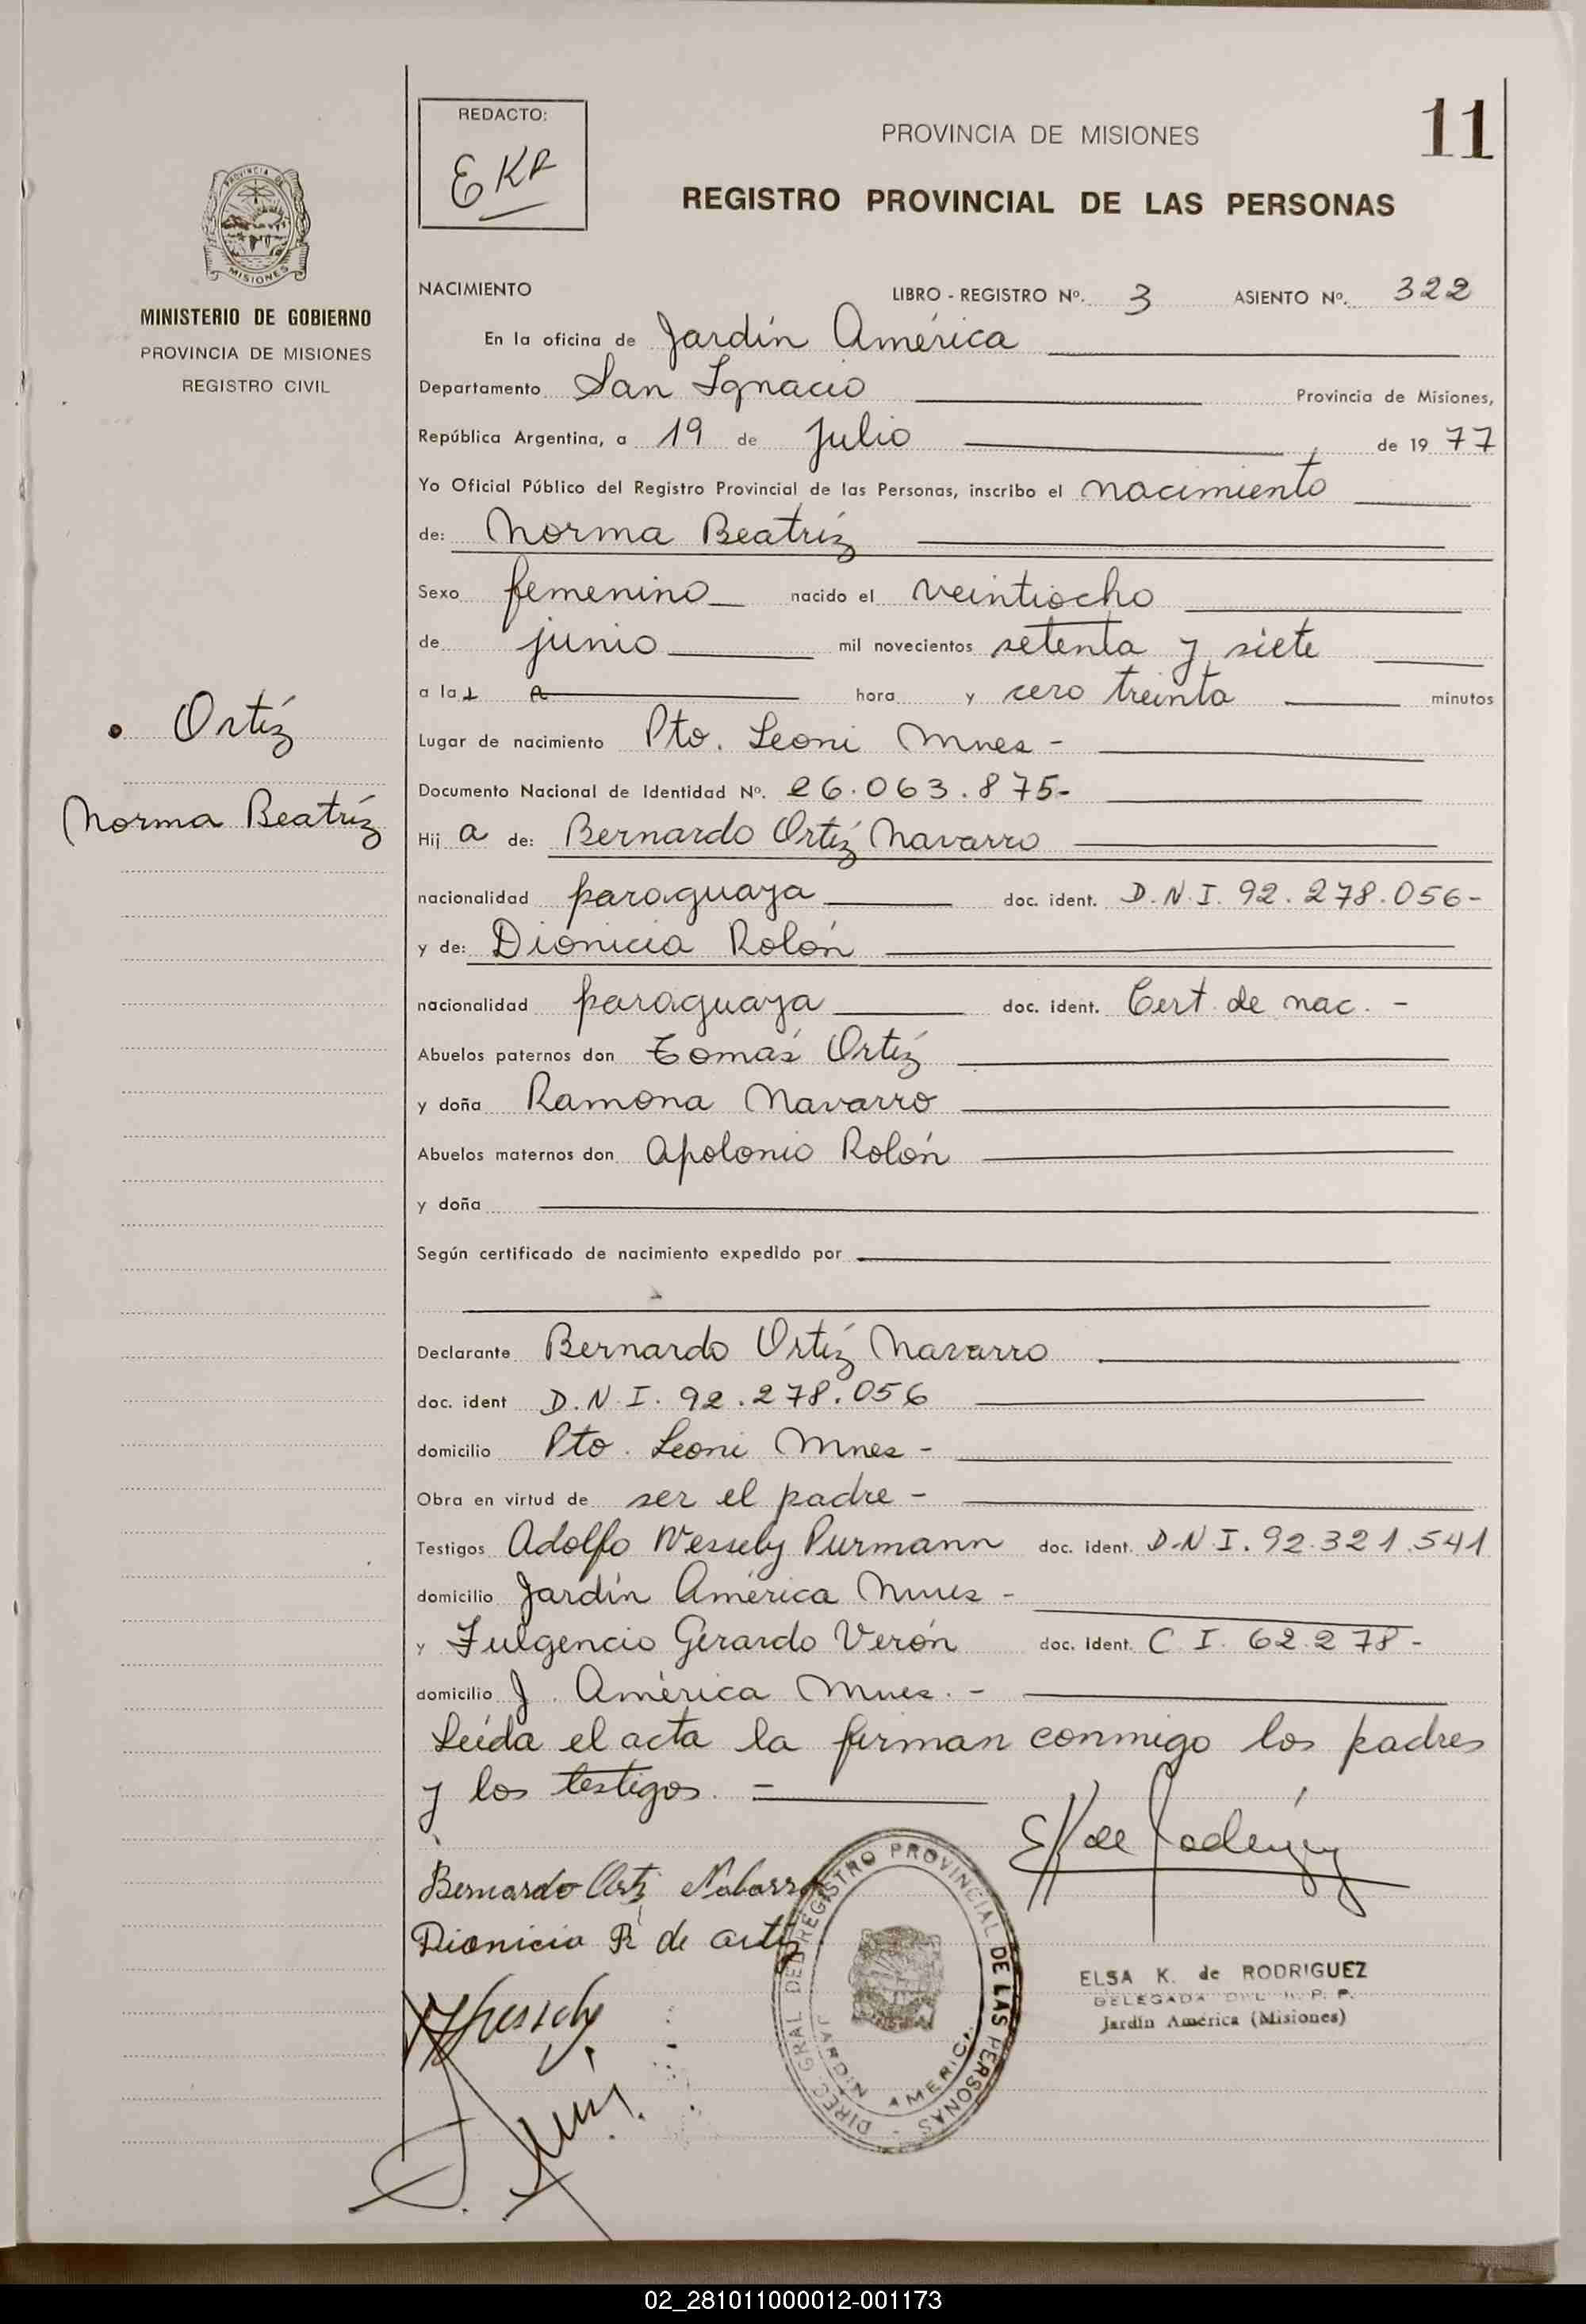 REDACTO:
EKR
PROVINCIA DE MISIONES
11
REGISTRO PROVINCIAL DE LAS PERSONAS
PROVINCIA DE
MISIONES
MINISTERIO DE GOBIERNO
PROVINCIA DE MISIONES
REGISTRO CIVIL
NACIMIENTO LIBRO - REGISTRO Nº. 3 ASIENTO Nº. 322
En la oficina de Jardín América
Departamento San Ignacio Provincia de Misiones,
República Argentina, a 19 de Julio de 19 77
Yo Oficial Público del Registro Provincial de las Personas, inscribo el nacimiento
de: Norma Beatríz
Sexo femenino nacido el veintiocho
de junio mil novecientos setenta y siete
a la hora y cero treinta minutos
Ortíz
Norma Beatríz
Lugar de nacimiento Pto. Leoni Mnes -
Documento Nacional de Identidad Nº. 26.063.875-
Hij a de: Bernardo Ortíz Navarro
nacionalidad paraguaya doc. ident. D.N.I. 92.278.056-
y de: Dionicia Rolón
nacionalidad paraguaya doc. ident. Cert. de nac. -
Abuelos paternos don Tomás Ortíz
y doña Ramona Navarro
Abuelos maternos don Apolonio Rolón
y doña
Según certificado de nacimiento expedido por
Declarante Bernardo Ortíz Navarro
doc. ident D.N.I. 92.278.056
domicilio Pto. Leoni Mnes -
Obra en virtud de ser el padre -
Testigos Adolfo Wessely Purmann doc. ident. D.N.I. 92.321.541
domicilio Jardín América Mnes -
y Fulgencio Gerardo Verón doc. ident. C.I. 62.278-
domicilio J. América Mnes. -
Leída el acta la firman conmigo los padres
y los testigos. =
EK de Rodríguez
Bernardo Ortiz Nabarro
Dionicia R. de Ortiz
DIREC. GRAL. DEL REGISTRO PROVINCIAL DE LAS PERSONAS
JARDIN AMERICA
ELSA K. de RODRIGUEZ
DELEGADA DEL R. P. P.
Jardín América (Misiones)
02_281011000012-001173